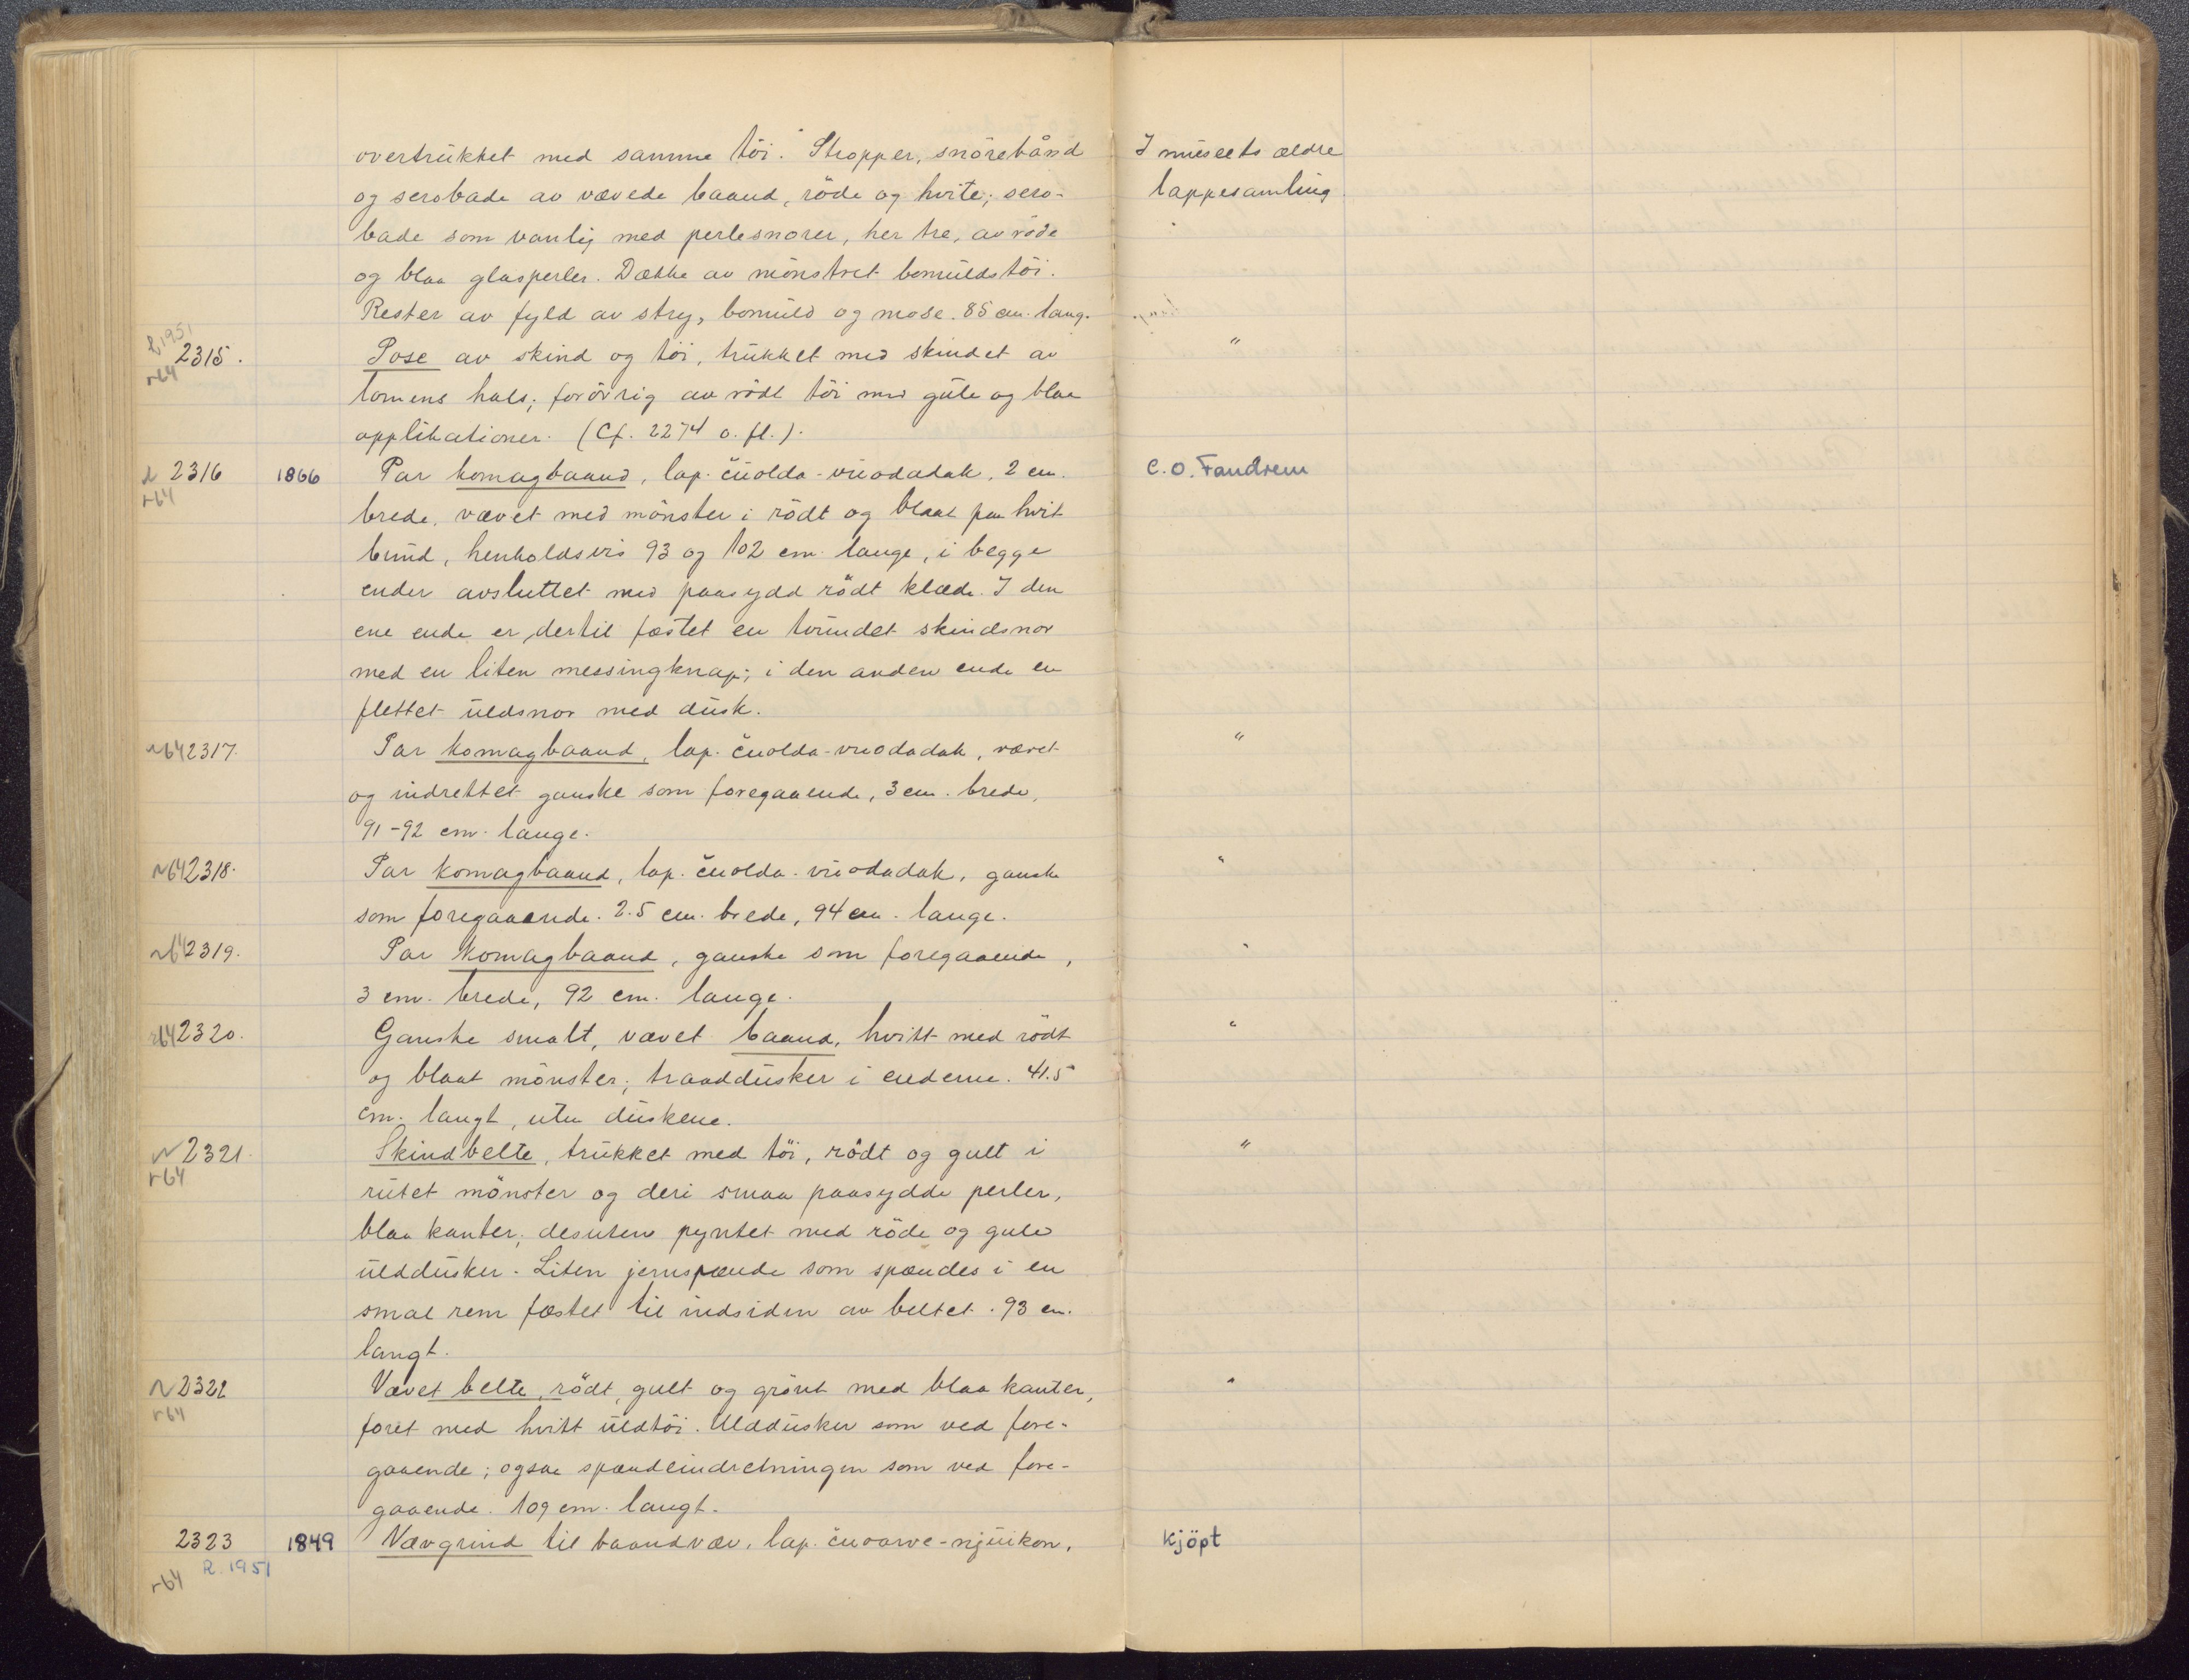 overtrukket med samme töi. Stropper, snörebånd
og serobade av vævede baand, röde og hvite; sero-
bade som vanlig med perlesnorer, her tre, av röde
og blaa glasperler. Dække av mönstret bomuldstöi.
Rester av fyld av stry, bomuld og mose. 85 cm. lang.
I museets ældre
lappesamling
R 1951
2315.
r64
Pose av skind og töi, trukket med skindet av
lomens hals; forövrig av rödt töi med gule og blaa
applikationer. (Cf. 2274 o. fl.).
"
2316
r64
1866
Par komagbaand, lap. čuolda-vuodadak, 2 cm.
brede, vævet med mönster i rödt og blaat paa hvit
bund, henholdsvis 93 og 102 cm. lange, i begge
ender avsluttet med paasydd rödt klæde. I den
ene ende er dertil fæstet en tvundet skindsnor
med en liten messingknap; i den anden ende en
flettet uldsnor med dusk.
C. O. Fandrem
r64 2317.
Par komagbaand, lap. čuolda-vuodadak, vævet
og indrettet ganske som foregaaende, 3 cm. brede,
91-92 cm. lange.
"
r64 2318.
Par komagbaand, lap. čuolda-vuodadak, ganske
som foregaaende. 2.5 cm. brede, 94 cm. lange.
"
r64 2319.
Par komagbaand, ganske som foregaaende,
3 cm. brede, 92 cm. lange.
"
r64 2320.
Ganske smalt, vævet baand, hvitt med rödt
og blaat mönster; traaddusker i enderne. 41.5
cm. langt, uten duskene.
"
2321.
r64
Skindbelte, trukket med töi, rödt og gult i
rutet mönster og deri smaa paasydde perler,
blaa kanter; desuten pyntet med röde og gule
ulddusker. Liten jernspænde som spændes i en
smal rem fæstet til indsiden av beltet. 93 cm.
langt.
"
2322
r64
Vævet belte, rödt, gult og grönt med blaa kanter,
foret med hvitt uldtöi. Ulddusker som ved fore-
gaaende; ogsaa spændeindretningen som ved fore-
gaaende. 109 cm. langt.
"
2323
r64 R. 1951
1849
Vævgrind til baandvæv, lap. čuoarve-njuikon,
Kjöpt